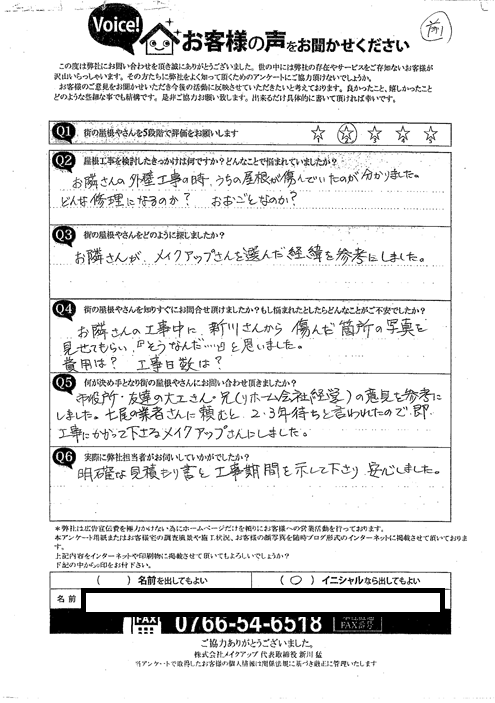 前
Voice!
お客様の声をお聞かせください
この度は弊社にお問い合わせを頂き誠にありがとうございました。世の中には弊社の存在やサービスをご存知ないお客様が
沢山いらっしゃいます。その方たちに弊社をよく知って頂くためのアンケートにご協力頂けないでしょうか。
お客様のご意見をお聞かせいただき今後の活動に反映させていただきたいと考えております。良かったこと、嬉しかったこと
どのような些細な事でも結構です。是非ご協力お願い致します。出来るだけ具体的に書いて頂ければ幸いです。
Q1 街の屋根やさんを5段階で評価をお願いします
1 2 3 4 5
Q2 屋根工事を検討したきっかけは何ですか?どんなことで悩まれていましたか?
お隣さんの外壁工事の時、うちの屋根が傷んでいたのが分かりました。
どんな修理になるのか? おおごとなのか?
Q3 街の屋根やさんをどのように探しましたか?
お隣さんが、メイクアップさんを選んだ経緯を参考にしました。
Q4 街の屋根やさんを知りすぐにお問合せ頂けましたか?もし悩まれたとしたらどんなことがご不安でしたか?
お隣さんの工事中に、新川さんから傷んだ箇所の写真を
見せてもらい、『そうなんだ……』と思いました。
費用は? 工事日数は?
Q5 何が決め手となり街の屋根やさんにお問い合わせ頂きましたか?
市役所・友達の大工さん・兄(リホーム会社経営)の意見を参考に
しました。七尾の業者さんに頼むと、2・3年待ちと言われたので、即
工事にかかって下さるメイクアップさんにしました。
Q6 実際に弊社担当者がお伺いしていかがでしたか?
明確な見積もり書と工事期間を示して下さり、安心しました。
*弊社は広告宣伝費を極力かけない為にホームページだけを頼りにお客様への営業活動を行っております。
本アンケート用紙またはお客様宅の調査風景や施工状況、お客様の顔写真を随時ブログ形式のインターネットに掲載させて頂いております。
上記内容をインターネットや印刷物に掲載させて頂いてもよろしいでしょうか?
下記の中から○印をお付下さい。
( ) 名前を出してもよい ( ○ ) イニシャルなら出してもよい
名前
FAX 0766-54-6518 FAX番号
ご協力ありがとうございました。
株式会社メイクアップ 代表取締役 新川 猛
当アンケートで取得したお客様の個人情報は関係法規に基づき厳正に管理いたします